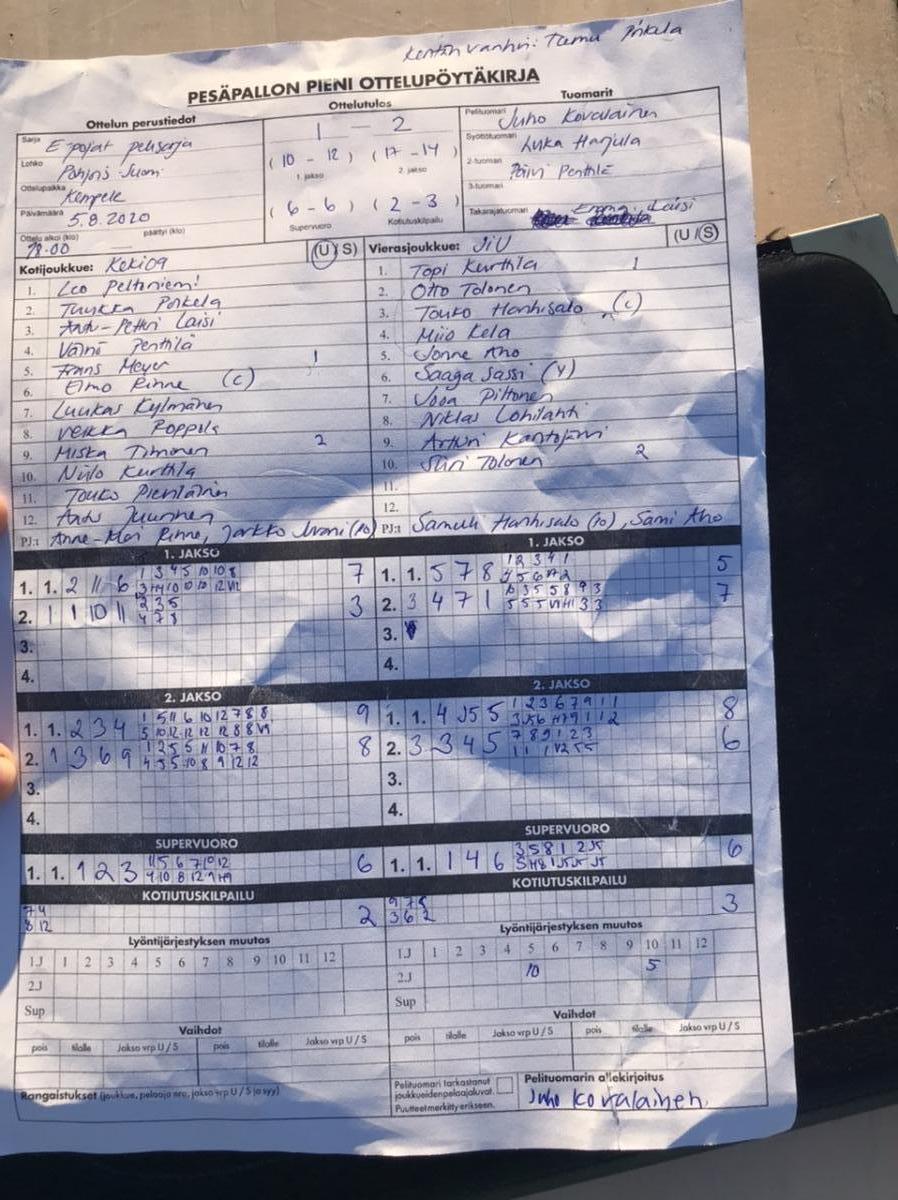 Kentän vanhin: Tamu Pirkela
PESÄPALLON PIENI OTTELUPÖYTÄKIRJA
Ottelun perustiedot
Sarja E-pojat pelisarja
Lohko Pohjois-Suomi
Ottelupaikka Kempele
Päivämäärä 5.8.2020
Ottelu alkoi (klo) 18.00 päättyi (klo)
Ottelutulos
1 - 2
(10 - 12) (17 - 14)
1. jakso 2. jakso
(6 - 6) (2 - 3)
Supervuoro Kotiutuskilpailu
Tuomarit
Pelituomari Juho Kovalainen
Syöttötuomari Luka Harjula
2-tuomari Päivi Penttilä
3-tuomari
Takarajatuomari Emma Laisi
Kotijoukkue: Keki09 (U/S)
1. Leo Peltoniemi
2. Tuukka Pirkela
3. Antti-Petteri Laisi
4. Väinö Penttilä
5. Frans Meyer 1
6. Elmo Rinne (C)
7. Luukas Kylmänen
8. Veikka Poppels
9. Miska Timonen 2
10. Niilo Kurttila
11. Touko Pieniläinen
12. Antti Juurinen
PJ:t Anne-Mari Rinne, Jarkko Juvani (PJ)
Vierasjoukkue: JiU (U/S)
1. Topi Kurttila 1
2. Otto Tolonen
3. Touko Hanhisalo (C)
4. Miio Kela
5. Jonne Aho
6. Saaga Sassi (V)
7. Joona Piltonen
8. Niklas Lohilahti
9. Artturi Kantojärvi
10. Siiri Tolonen 2
11.
12.
PJ:t Samuli Hanhisalo (PJ), Sami Aho
1. JAKSO
1. 1. 2 11 6 1 3 4 5 10 10 8 7
2. 1 1 10 11 2 3 5 3
4 7 8
3.
4.
1. JAKSO
1. 1. 5 7 8 1 2 3 4 1 5
2. 3 4 7 1 7
3.
4.
2. JAKSO
1. 1. 2 3 4 1 5 11 6 10 12 7 8 8 9
2. 1 3 6 9 1 2 5 5 11 10 7 8 8
4 5 5 10 8 9 12 12
3.
4.
2. JAKSO
1. 1. 4 J5 5 1 2 3 6 7 9 1 1 8
2. 3 3 4 5 7 8 9 1 2 3 6
3.
4.
SUPERVUORO
1. 1. 1 2 3 11 5 6 7 10 12 6
SUPERVUORO
1. 1. 1 4 6 3 5 8 1 2 J5 6
KOTIUTUSKILPAILU
7 4 2
8 12
KOTIUTUSKILPAILU
9 7 5 3
3 6 2
Lyöntijärjestyksen muutos
1.J 1 2 3 4 5 6 7 8 9 10 11 12
2.J
Sup
Lyöntijärjestyksen muutos
1.J 1 2 3 4 5 6 7 8 9 10 11 12
2.J 10 5
Sup
Vaihdot
pois tilalle Jakso vrp U / S pois tilalle Jakso vrp U / S
Vaihdot
pois tilalle Jakso vrp U / S pois tilalle Jakso vrp U / S
Rangaistukset (joukkue, pelaaja nro, jakso vrp U / S ja syy)
Pelituomari tarkastanut
joukkueiden pelaajaluvat.
Puutteet merkitty erikseen.
Pelituomarin allekirjoitus
Juho Kovalainen